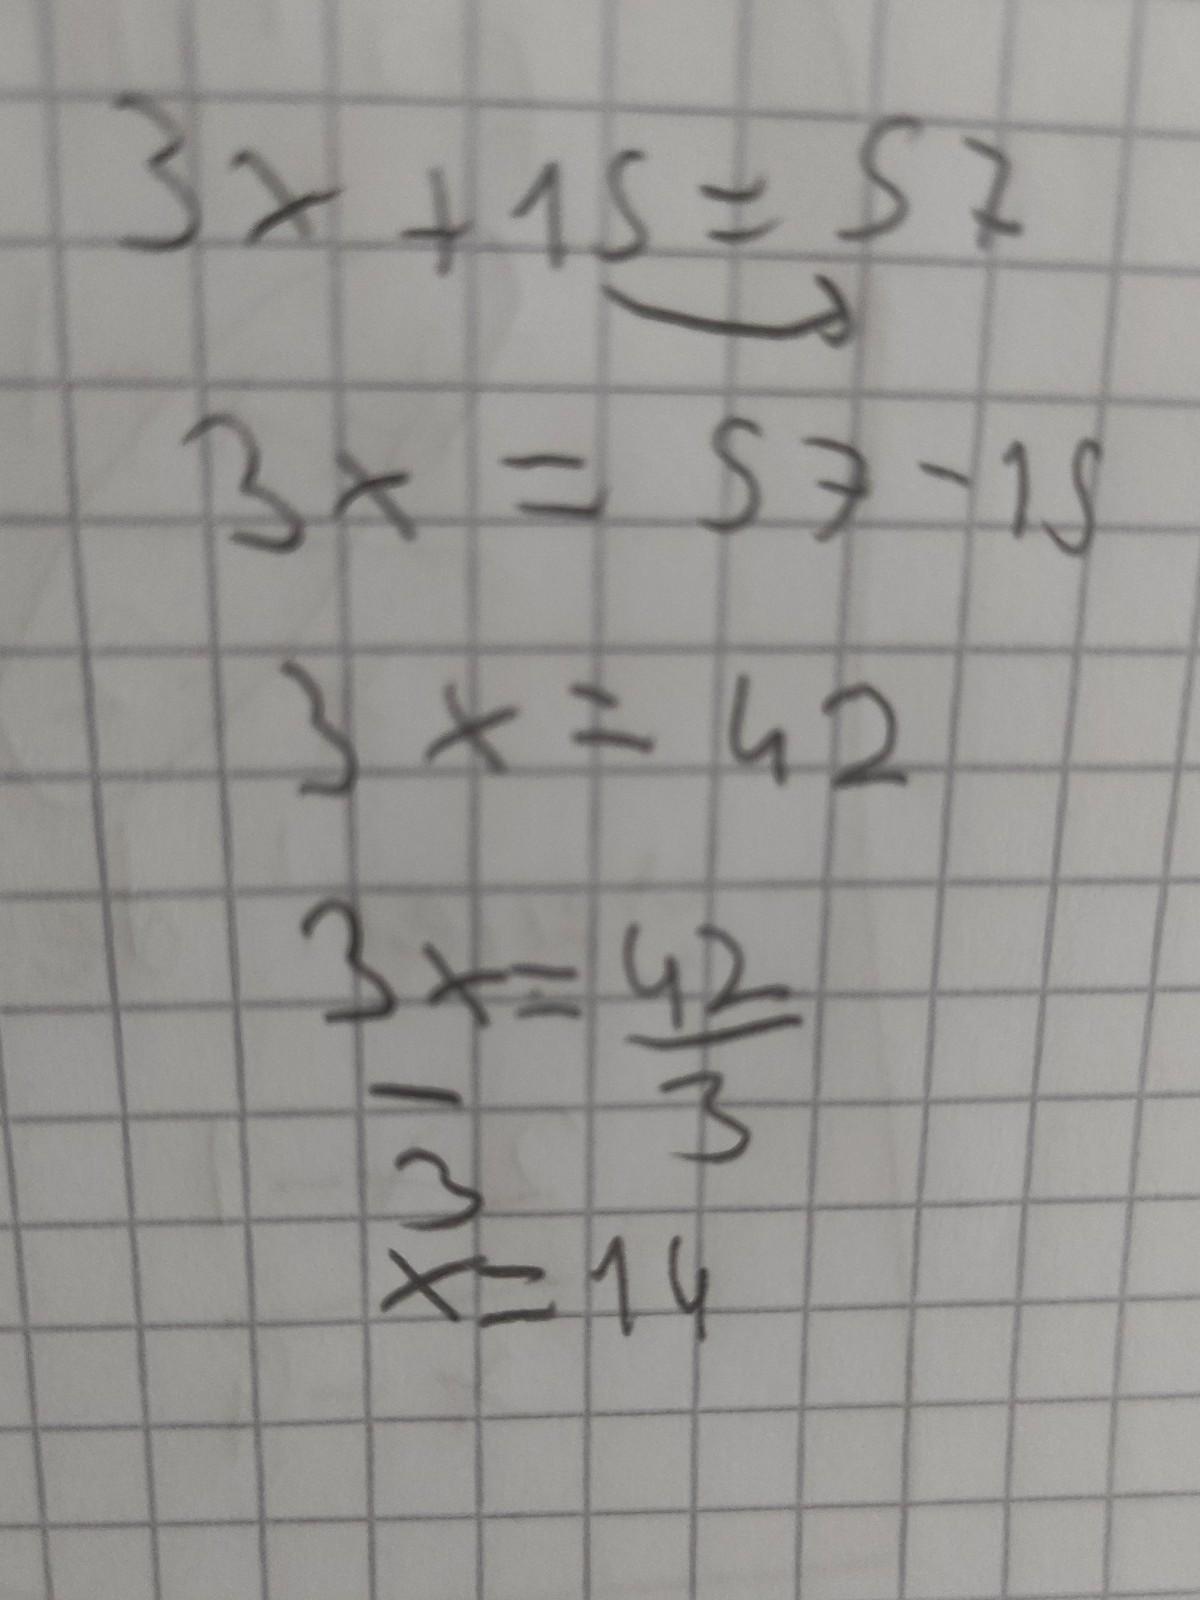 3x + 15 = 57
3x = 57 - 15
3x = 42
3x = 42
— —
3 3
x = 14